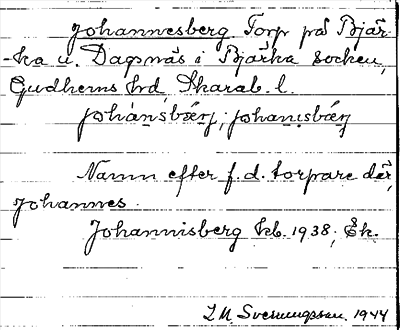 Johannesberg. Torp på Bjär-
-ka u. Dagsnäs i Bjärka socken,
Gudhems hd, Skarab. l.
johànsbærj; johanisbærj
Namn efter f. d. torpare där,
Johannes.
Johannisberg kb. 1938, Ek.
Sverungsson. 1944